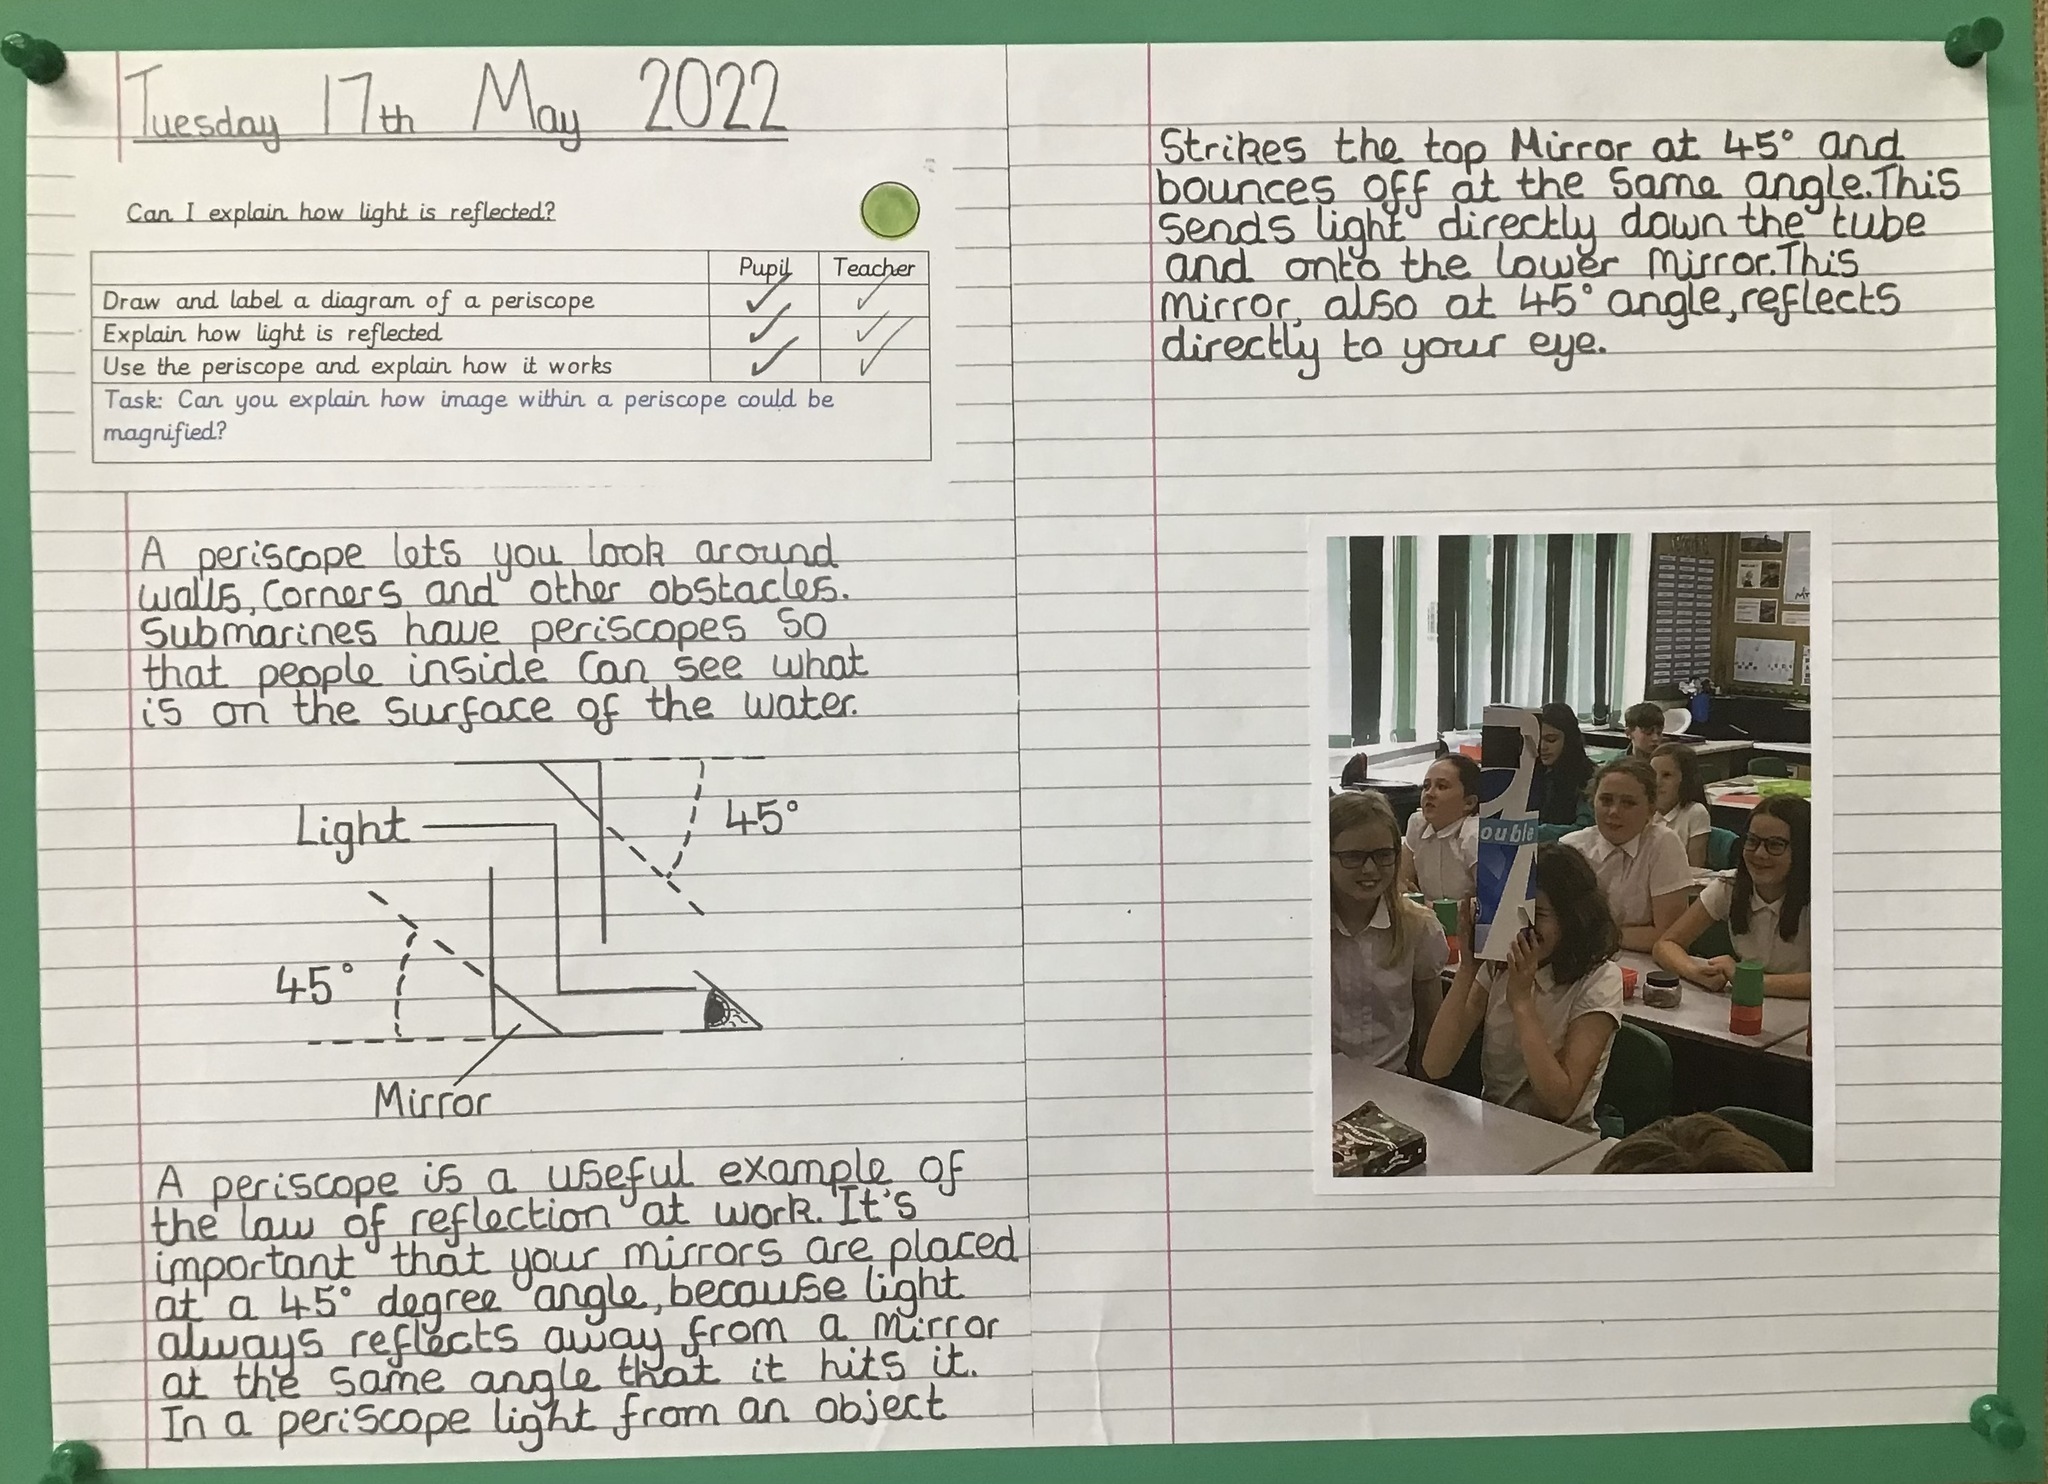 Tuesday 17th May 2022
Can I explain how light is reflected?
Pupil Teacher
Draw and label a diagram of a periscope
Explain how light is reflected
Use the periscope and explain how it works
Task: Can you explain how image within a periscope could be
magnified?
A periscope lets you look around
walls, Corners and other obstacles.
Submarines have periscopes So
that people inside Can see what
is on the surface of the water.
Light
45°
45°
Mirror
A periscope is a useful example of
the law of reflection at work. It's
important that your mirrors are placed
at a 45° degree angle, because light
always reflects away from a mirror
at the same angle that it hits it.
In a periscope light from an object
Strikes the top Mirror at 45° and
bounces off at the same angle. This
sends light directly down the tube
and onto the lower mirror. This
mirror, also at 45° angle, reflects
directly to your eye.
ouble